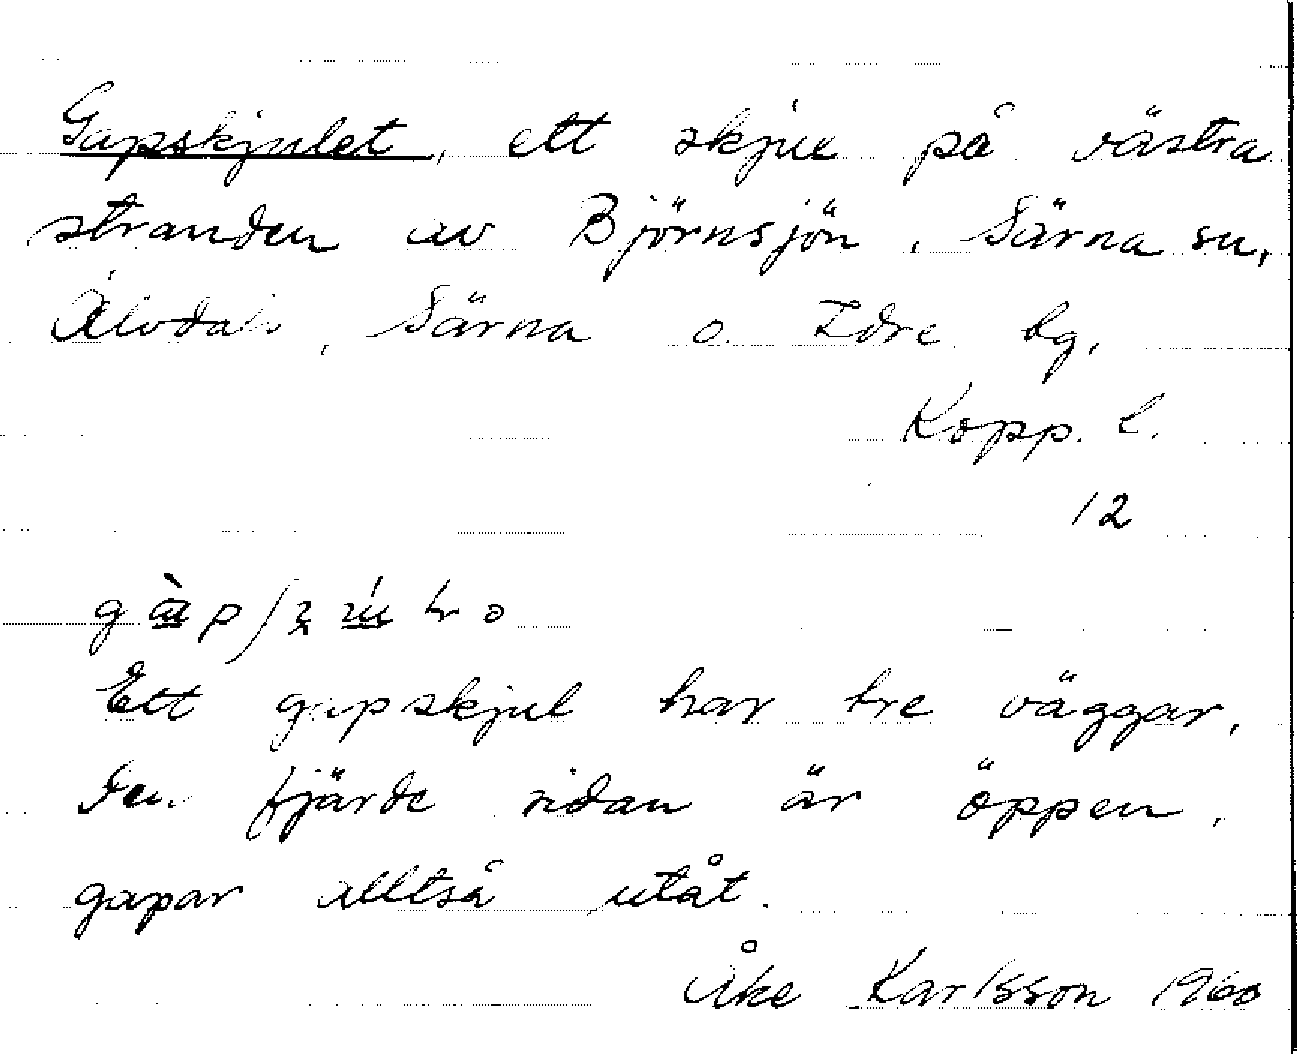 Gapskjulet, ett skjul på västra
stranden av Björnsjön, Särna sn,
Älvdals, Särna o. Idre lg,
Kopp. l.
12
Ett gapskjul har tre väggar,
den fjärde sidan är öppen,
gapar alltså utåt.
Åke Karlsson 1960